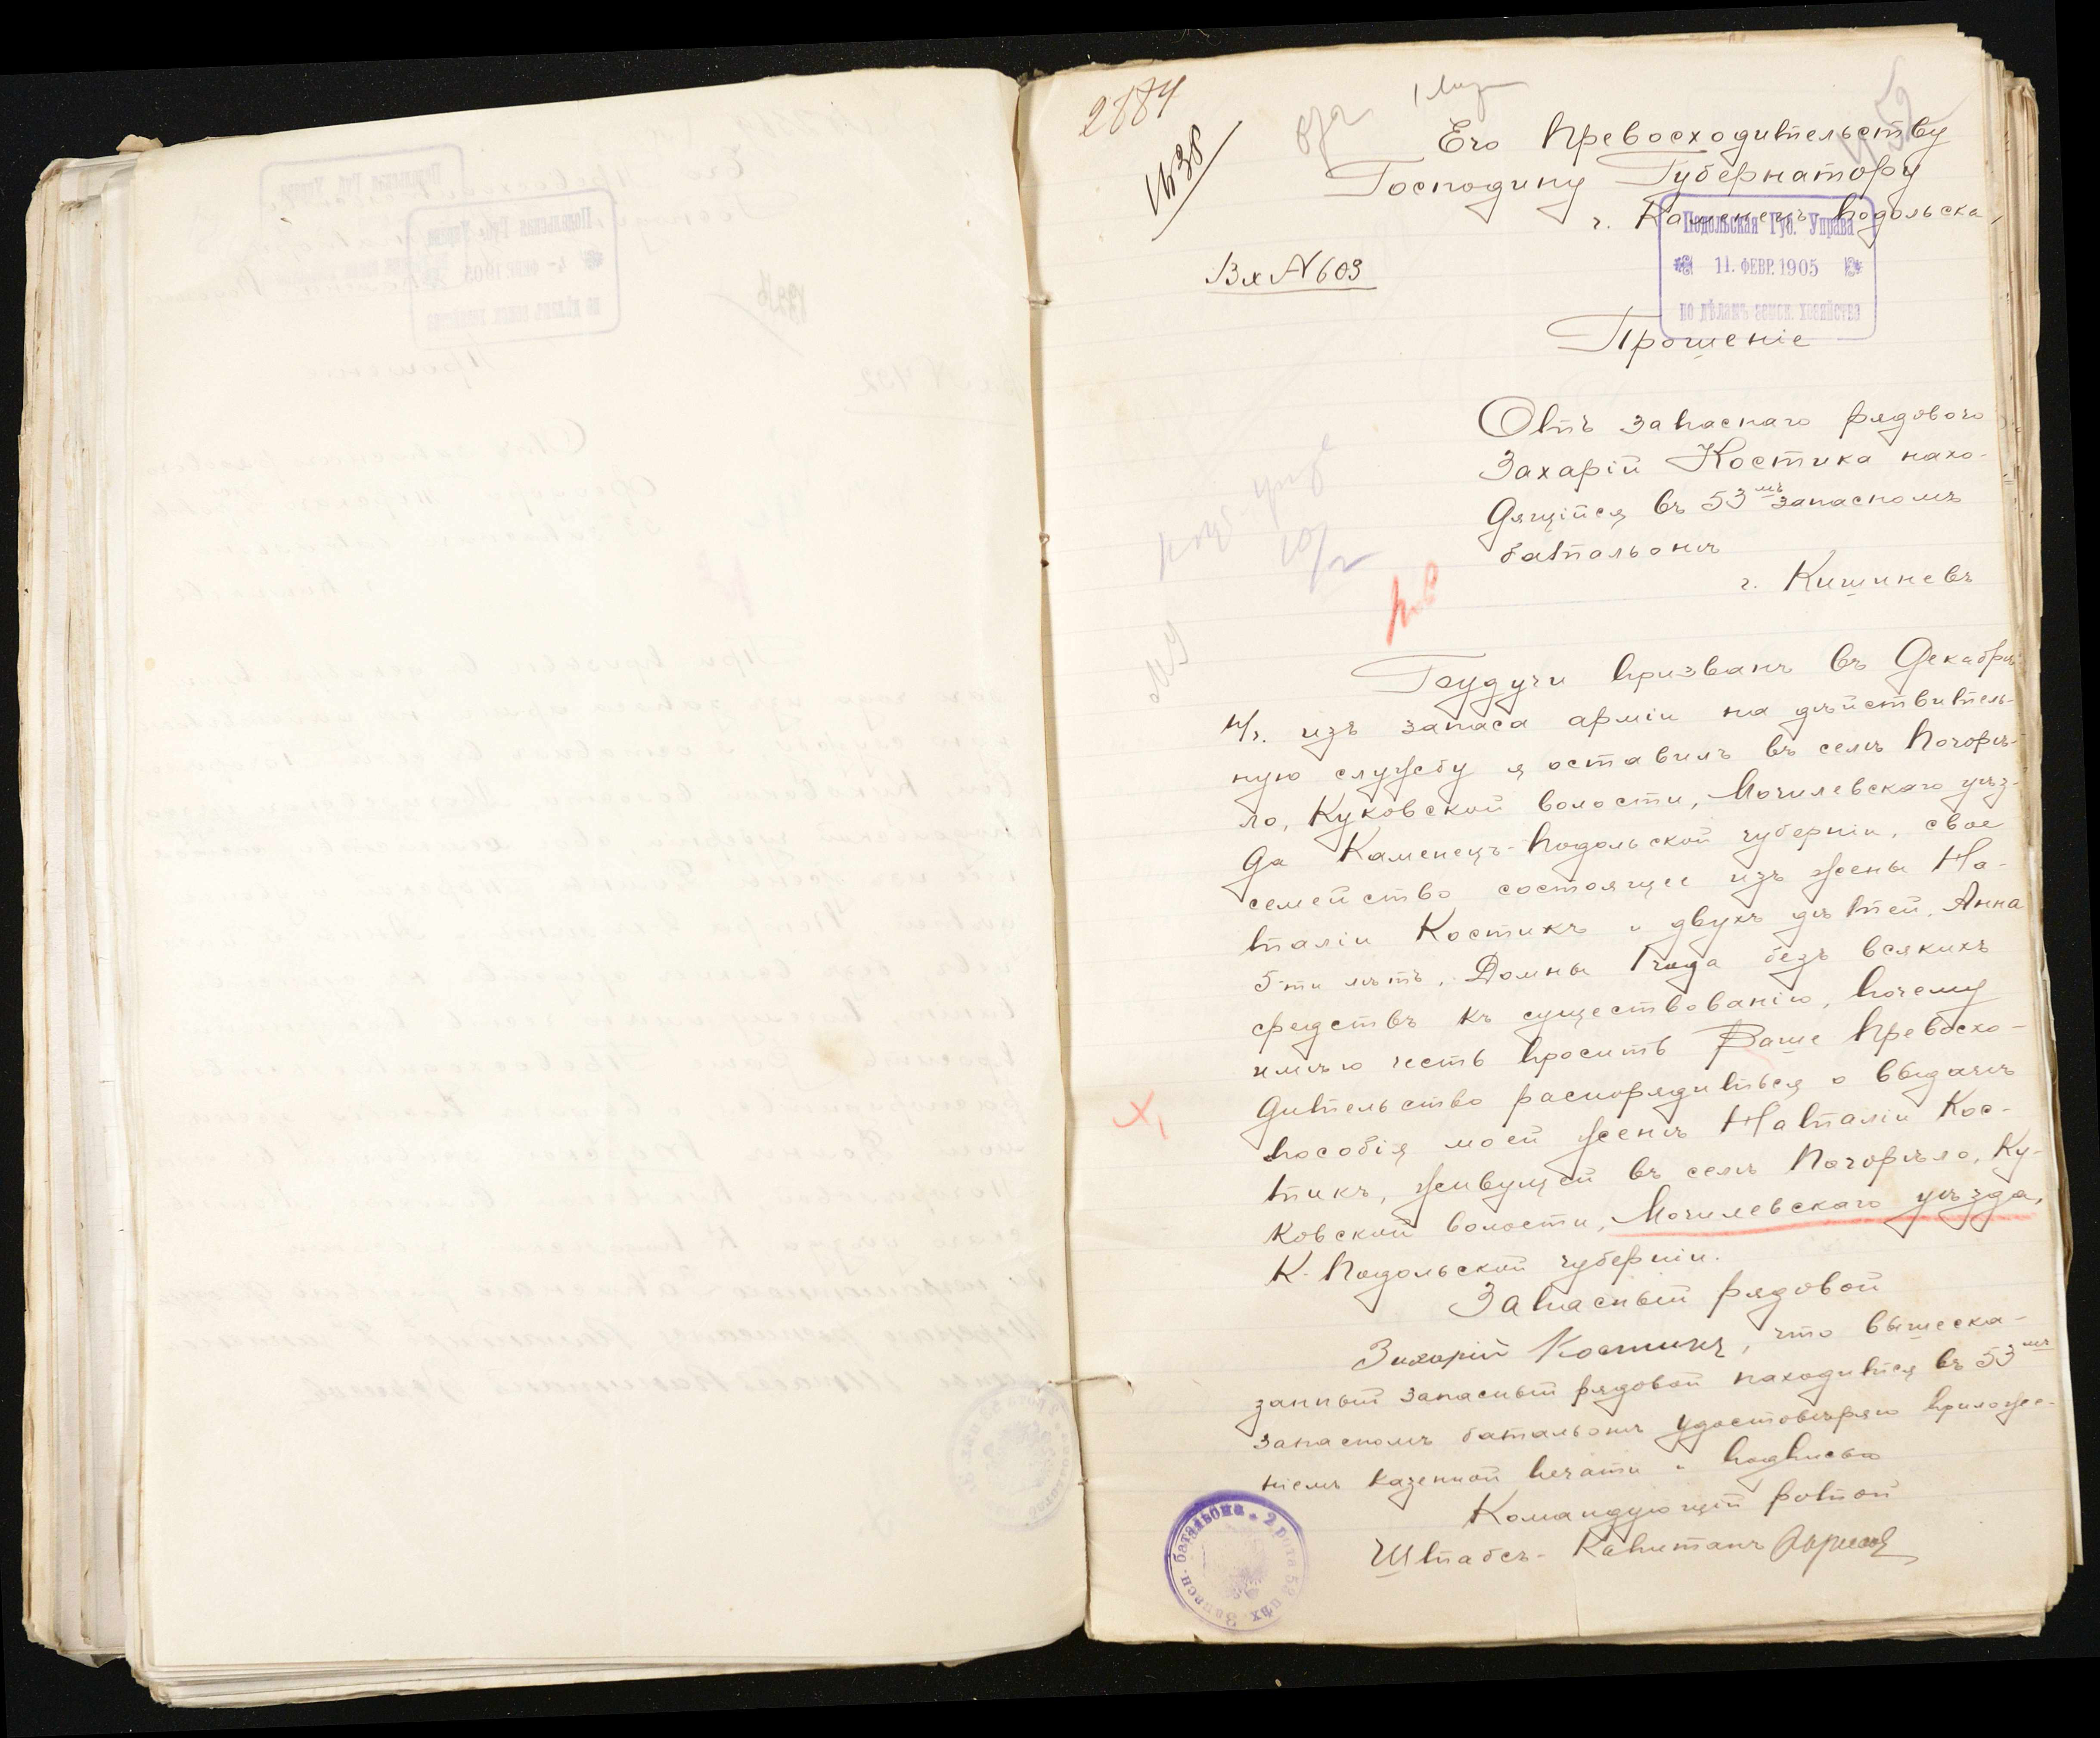 2884
1438
Его Превосходительству
Господину Губернатору
г. Каменецъ Подольска,
Подольская Губ. Управа
11. ФЕВР. 1905
по дѣламъ земск. хозяйства
Вх № 609
Прошеніе
Отъ запаснаго рядового
Захарій Костика нахо-
дящійся въ 53мъ запасномъ
баталъонѣ
г. Кишиневъ
Будучи призванъ въ Декабрѣ
н/г. изъ запаса арміи на дѣйствитель-
ную службу я оставилъ въ селѣ Погорѣ-
ло, Куковской волости, Могилевскаго уѣз-
да Каменецъ-Подольской губерніи, свое
семейство состоящее изъ жены На-
таліи Костикъ и двухъ дѣтей, Анна
5-ти лѣтъ, Домны 1 года безъ всякихъ
средствъ къ существованію, почему
имѣю честь просить Ваше Превосхо-
дительство распорядиться о выдачѣ
пособія моей женѣ Наталіи Кос-
тикъ, живущей въ селѣ Погорѣло, Ку-
ковской волости, Могилевскаго уѣзда,
К. Подольской губерніи.
Запасный рядовой
Захарій Костикъ, что вышеска-
занный запасный рядовой находится въ 53мъ
запасномъ баталъонѣ удостовѣряю приложе-
ніемъ казенной печати и подписью
Командующій ротой
Штабсъ-Капитанъ
2 рота 53 пѣх. Запасн. баталъона